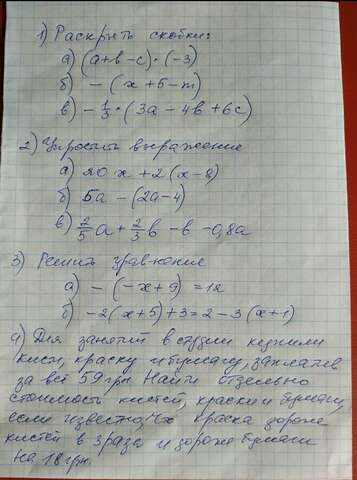 1) Раскрыть скобки:
а) (a+b-c)·(-3)
б) -(x+5-m)
в) -1/3·(3a-4b+6c)
2) Упростить выражение
а) 20x+2(x-8)
б) 5a-(2a-4)
в) 2/5a+2/3b-b-0,8a
3) Решить уравнения
а) -(-x+9)=12
б) -2(x+5)+3=2-3(x+1)
4) Для занятий в студии купили
кисти, краску и бумагу, заплатив
за всё 59 грн. Найти отдельно
стоимость кистей, краски и бумаги,
если известно, что краска дороже
кистей в 3 раза и дороже бумаги
на 18 грн.